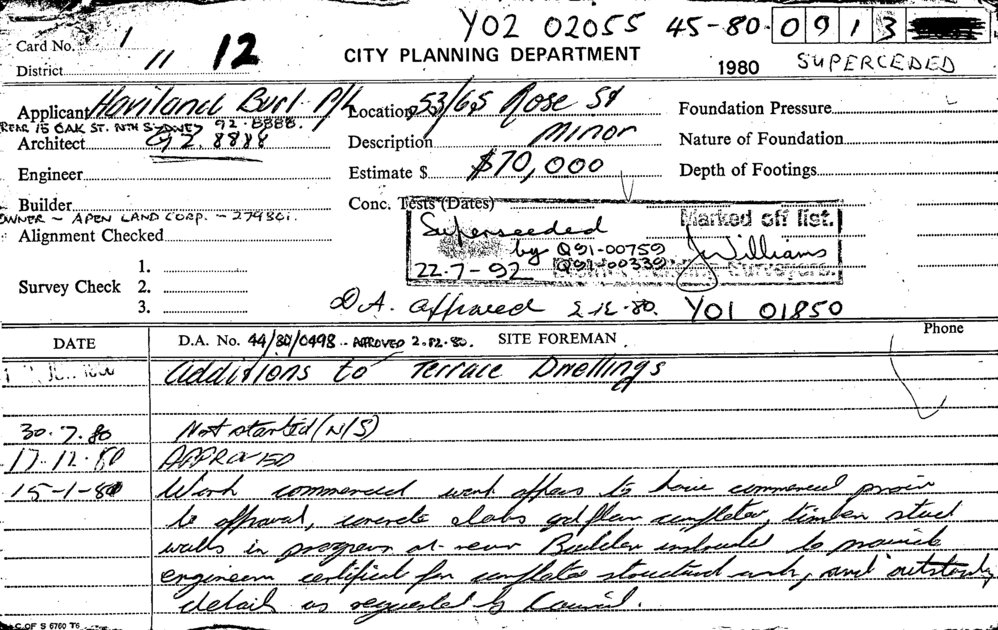 Y02 02055 45-80-0913
Card No. 1
11 12
CITY PLANNING DEPARTMENT
1980 SUPERCEDED
District
Applicant Haviland Burl P/L Location 53/65 Rose St Foundation Pressure
REAR 15 OAK ST. NTH SYDNEY 92.8888.
Architect 92.8888 Description Minor Nature of Foundation
Engineer Estimate $ $70,000 Depth of Footings
Builder Conc. Tests (Dates)
OWNER - APEN LAND CORP. - 279801.
Alignment Checked
Superseded Marked off list.
by Q91-00759 J Williams
22-7-92 Q91-00339 Surveyors.
Survey Check 1.
2.
3.
D.A. approved 2-12-80. Y01 01850
DATE D.A. No. 44/80/0498 - APPROVED 2.12.80. SITE FOREMAN Phone
Additions to Terrace Dwellings
30.7.80 Not started (N/S)
17.12.80 APPROVED
15-1-81 Work commenced work appears to have commenced prior
to approval, concrete slabs grd floor completed, timber stud
walls in progress at rear Builder instructed to provide
engineers certificate for completed structural work, and outstanding
details as requested by Council.
C. OF S 6760 T6